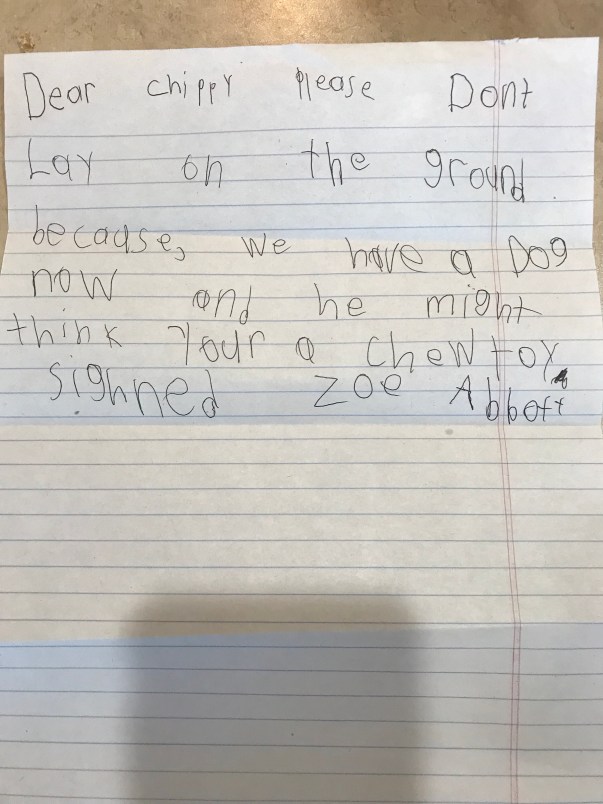 Dear chippy please Dont
Lay on the ground
because, we have a Dog
now and he might
think your a chew toy.
sighned zoe Abbott